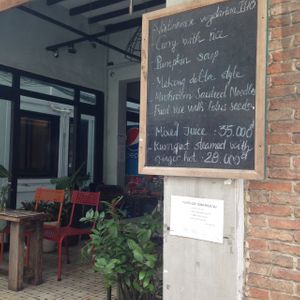 - Vietnamese vegetarian BUN
- Curry with rice
- Pumpkin soup
- Mekong delta style
- Mushroom Sauteed Noodles
- Fried rice with lotus seeds.
- Mixed Juice : 35.000đ
- Kumquat steamed with
ginger hot : 28.000đ
pepsi